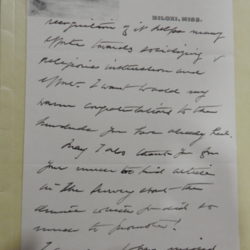 BILOXI, MISS.
recognition of it helps many
efforts towards socializing
religious instruction and
effort. I want to add my
warm congratulations to the
hundreds you have already had.
May I also thank you for
your
article
in the Survey about the
service
you did so
much to promote!